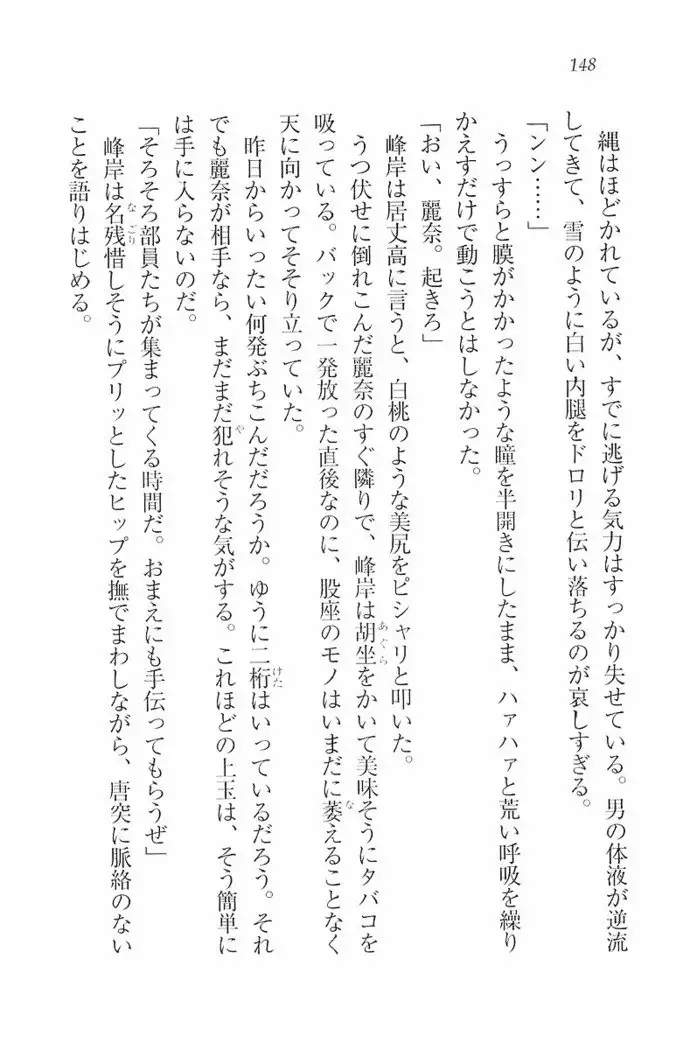 148
縄はほどかれているが、すでに逃げる気力はすっかり失せている。男の体液が逆流
してきて、雪のように白い内腿をドロリと伝い落ちるのが哀しすぎる。
「ンン……」
うっすらと膜がかかったような瞳を半開きにしたまま、ハァハァと荒い呼吸を繰り
かえすだけで動こうとはしなかった。
「おい、麗奈。起きろ」
峰岸は居丈高に言うと、白桃のような美尻をピシャリと叩いた。
うつ伏せに倒れこんだ麗奈のすぐ隣りで、峰岸は胡坐をかいて美味そうにタバコを
吸っている。バックで一発放った直後なのに、股座のモノはいまだに萎えることなく
天に向かってそそり立っていた。
昨日からいったい何発ぶちこんだだろうか。ゆうに二桁はいっているだろう。それ
でも麗奈が相手なら、まだまだ犯れそうな気がする。これほどの上玉は、そう簡単に
は手に入らないのだ。
「そろそろ部員たちが集まってくる時間だ。おまえにも手伝ってもらうぜ」
峰岸は名残惜しそうにプリッとしたヒップを撫でまわしながら、唐突に脈絡のない
ことを語りはじめる。